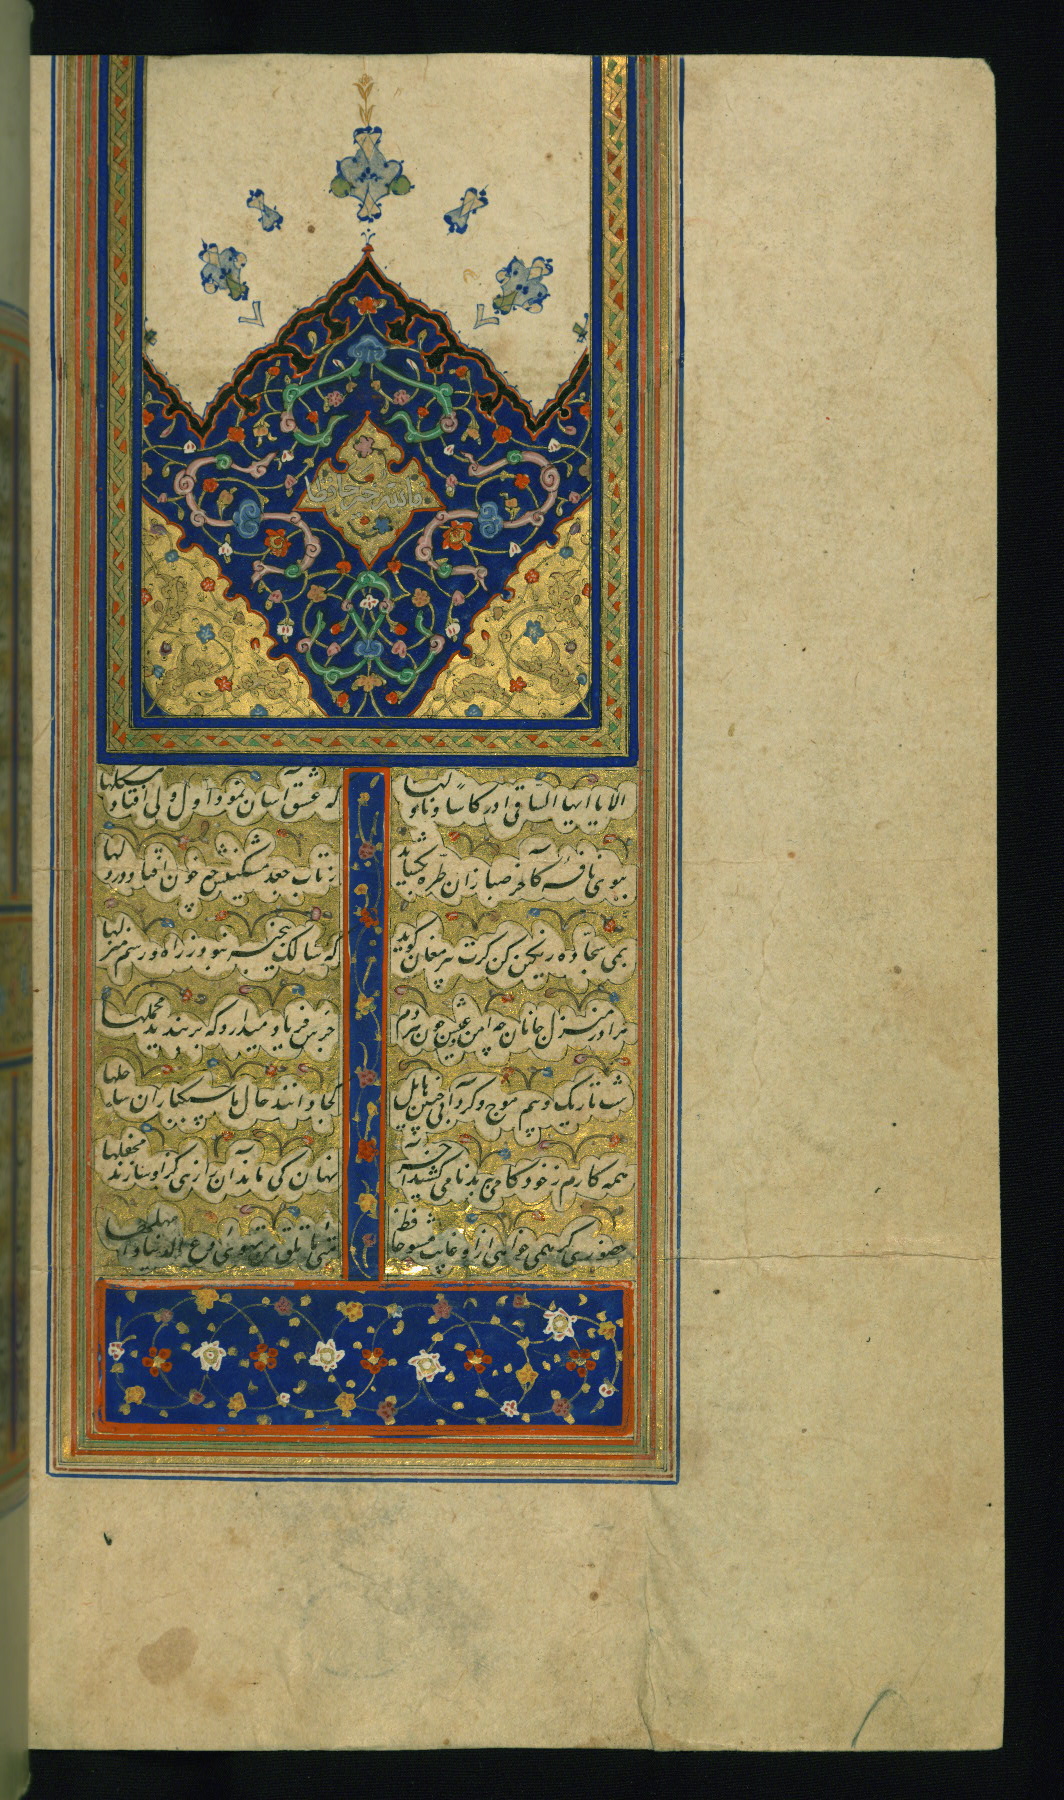 فالله خیر حافظا
الا یا ایها الساقی ادر کاسًا و ناولها که عشق آسان نمود اول ولی افتاد مشکلها
ببوی نافهٔ کآخر صبا زان طره بکشاید ز تاب جعد مشکینش چه خون افتاد در دلها
بمی سجّاده رنکین کن کرت پیر مغان کوید که سالک بیخبر نبود ز راه و رسم منزلها
مرا در منزل جانان چه امن عیش چون هر دم جرس فریاد میدارد که بربندید محملها
شب تاریک و بیم موج و کردابی چنین هایل کجا دانند حال ما سبکباران ساحلها
همه کارم ز خود کامی ببدنامی کشید آخر نهان کی ماند آن رازی کزو سازند محفلها
حضوری کر همی خواهی ازو غایب مشو حافظ متی ما تلق من تهوی دع الدنیا و اهملها